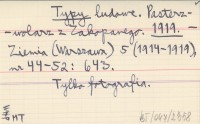 Typy ludowe. Pasterz-
-wolarz z Zakopanego. 1919.
Ziemia (Warszawa) 5 (1914-1919),
nr 44-52: 643.
Tylko fotografia.
HT